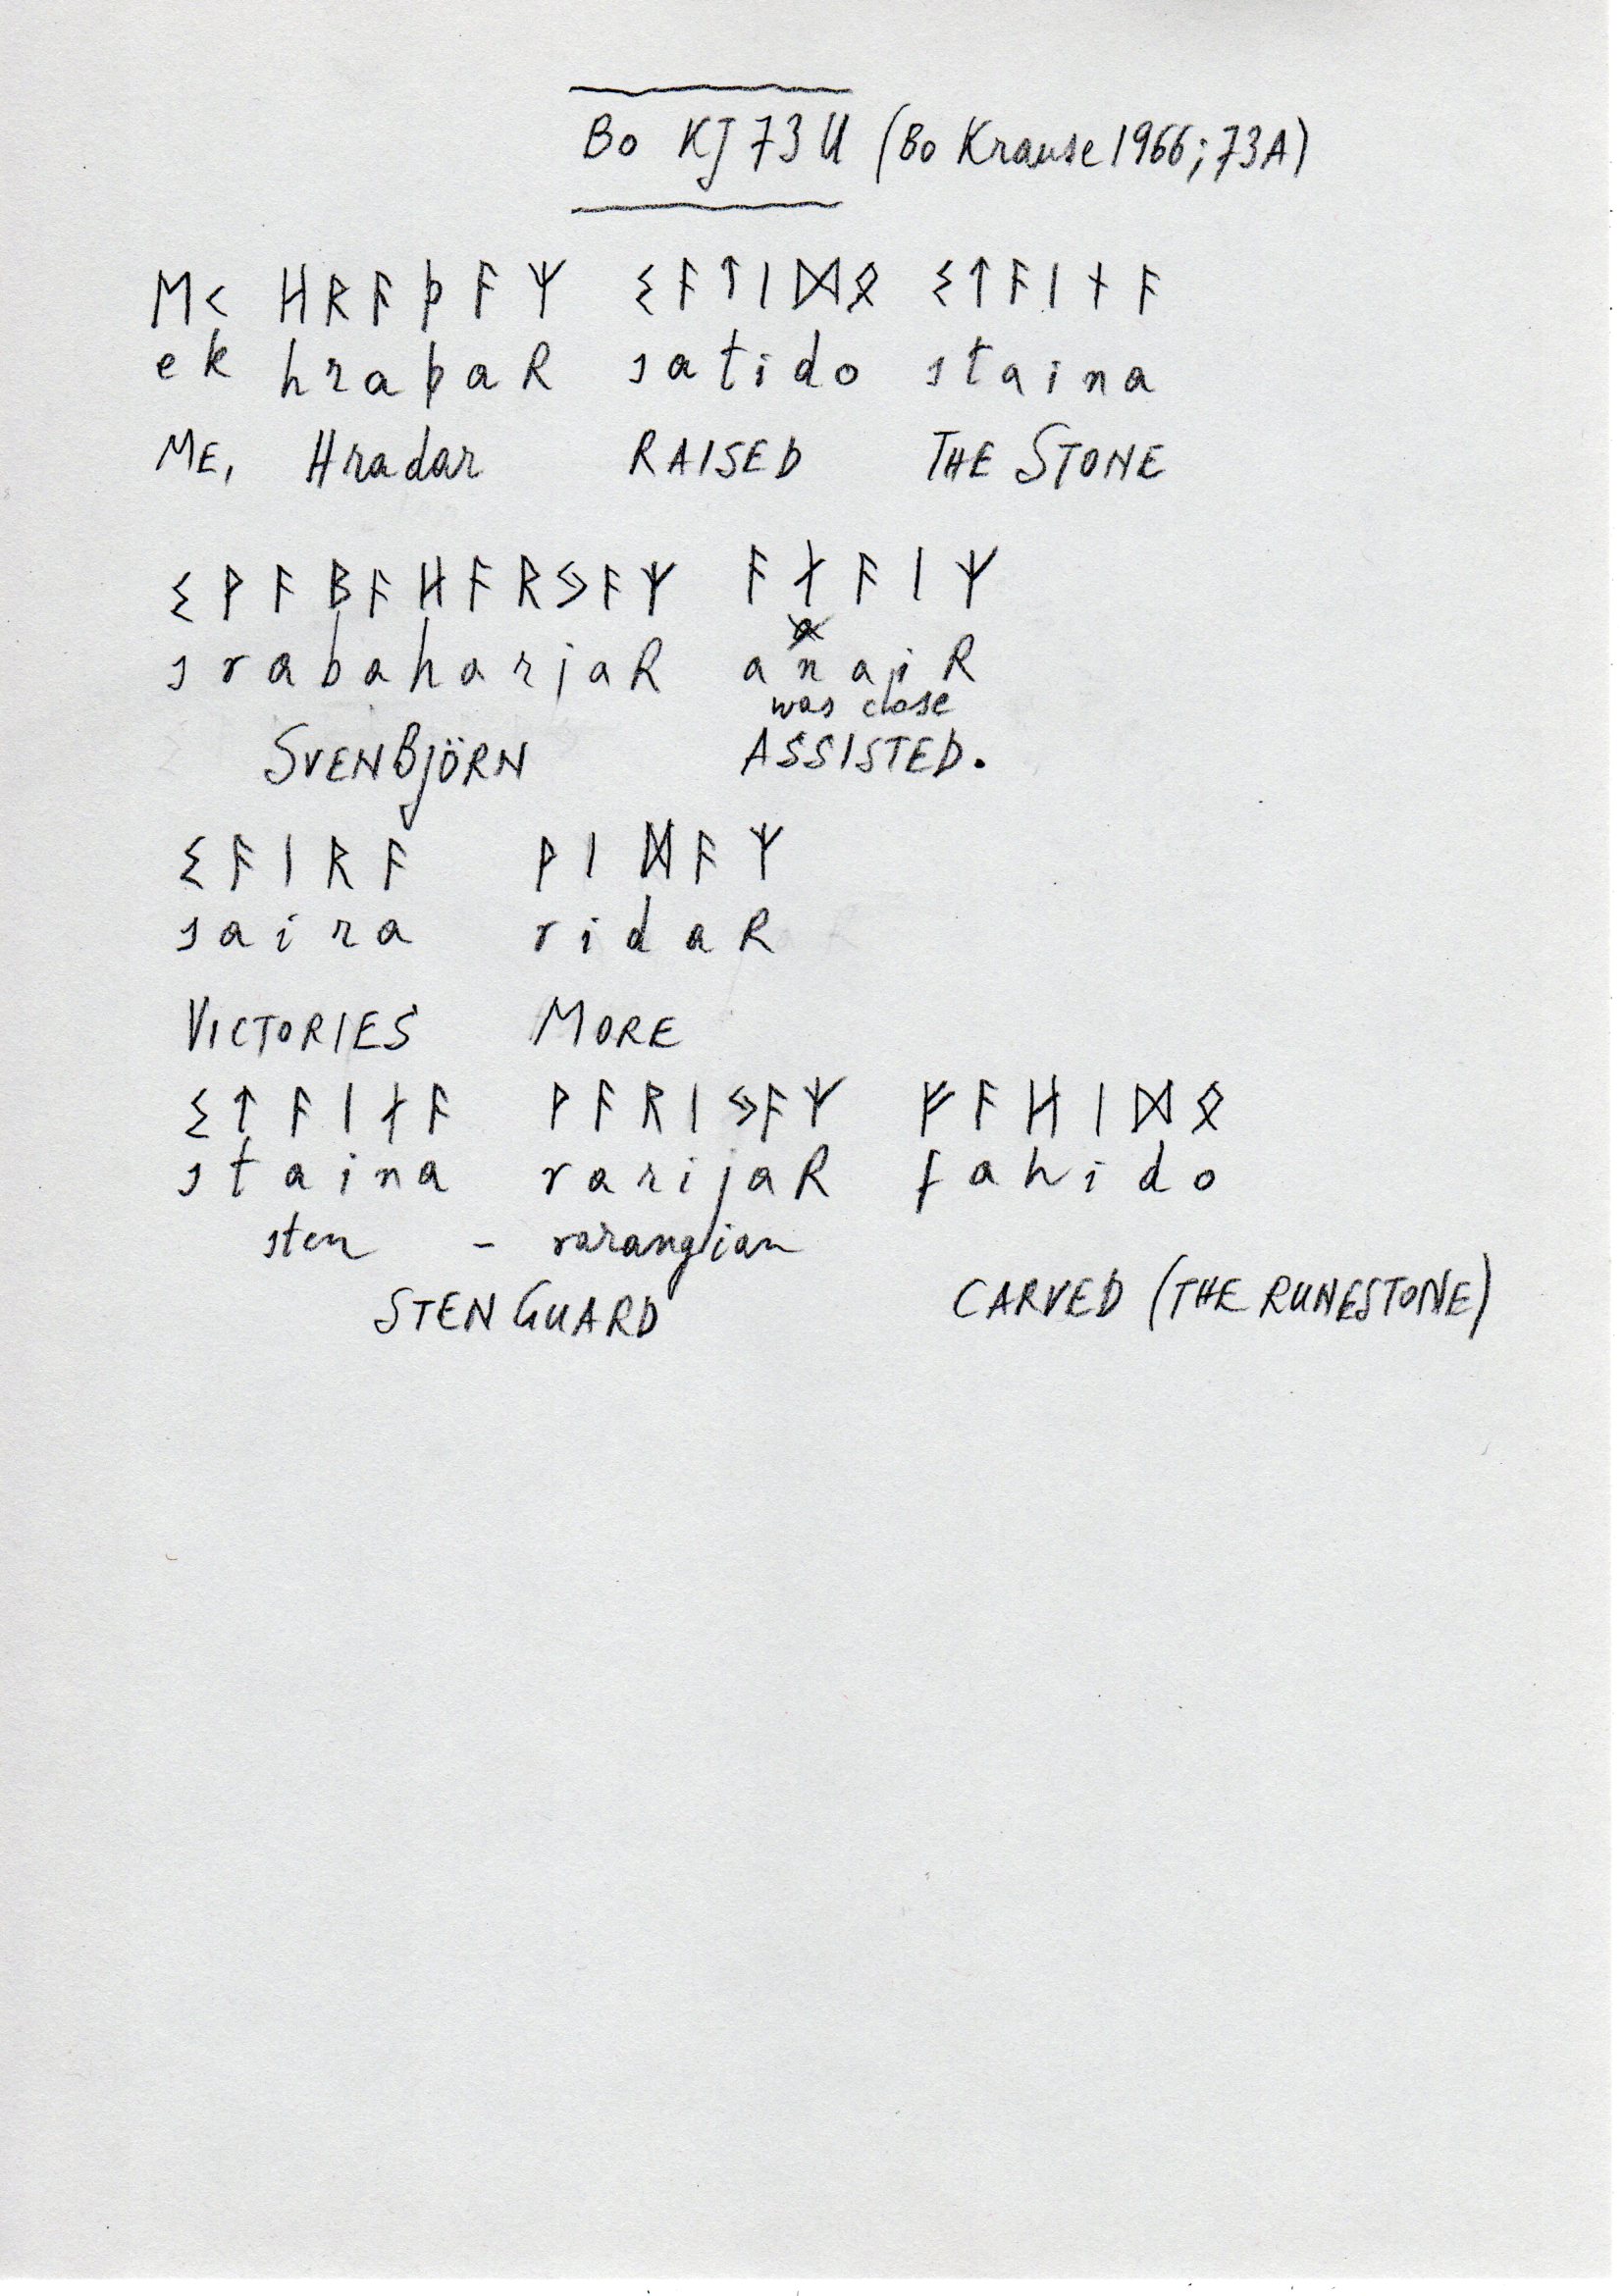 Bo KJ73U (Bo Krause 1966; 73A)
ᛖᚲ ᚺᚱᚨᚦᚨᛉ ᛊᚨᛏᛁᛞᛟ ᛊᛏᚨᛁᚾᚨ
ek hraþaR satido staina
ME, Hradar RAISED THE STONE
ᛊᚹᚨᛒᚨᚺᚨᚱᛃᚨᛉ ᚨᚾᚨᛁᛉ
svabaharjaR anaiR
was close
SVENBJÖRN ASSISTED.
ᛊᚨᛁᚱᚨ ᚹᛁᛞᚨᛉ
saira vidaR
VICTORIES MORE
ᛊᛏᚨᛁᚾᚨ ᚹᚨᚱᛁᛃᚨᛉ ᚠᚨᚺᛁᛞᛟ
staina varijaR fahido
sten - varangian
STEN GUARD CARVED (THE RUNESTONE)